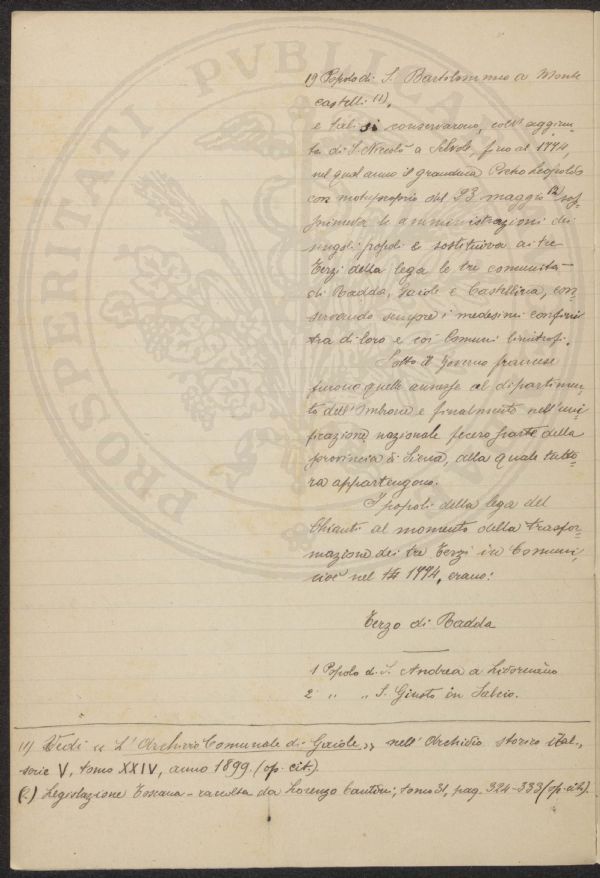 PROSPERITATI PVBLICAE
19 Popolo di S. Bartolommeo a Monte
castelli (1),
e tali si conservarono, coll' aggiun-
ta di S. Niccolò a Selvole, fino al 1774,
nel qual anno il granduca Pietro Leopoldo
con motuproprio del 23 maggio (2) sop-
primeva le amministrazioni dei
singoli popoli e sostituiva ai tre
Terzi della lega le tre comunità
di Radda, Gaiole e Castellina, con-
servando sempre i medesimi confini
tra di loro e coi Comuni limitrofi.
Sotto il Governo francese
furono quelle annesse al dipartimen-
to dell' Ombrone e finalmente nell' uni-
ficazione nazionale fecero parte della
provincia di Siena, alla quale tutto-
ra appartengono.
I popoli della lega del
Chianti al momento della trasfor-
mazione dei tre Terzi in Comuni,
cioè nel 1774, erano:
Terzo di Radda
1 Popolo di S. Andrea a Livornano
2 " " S. Giusto in Salcio.
(1) Vedi « L' Archivio Comunale di Gaiole » nell' Archivio storico ital.,
serie V, tomo XXIV, anno 1899. (op. cit.).
(2) Legislazione Toscana - raccolta da Lorenzo Cantini, tomo 31, pag. 324-333 (op. cit).